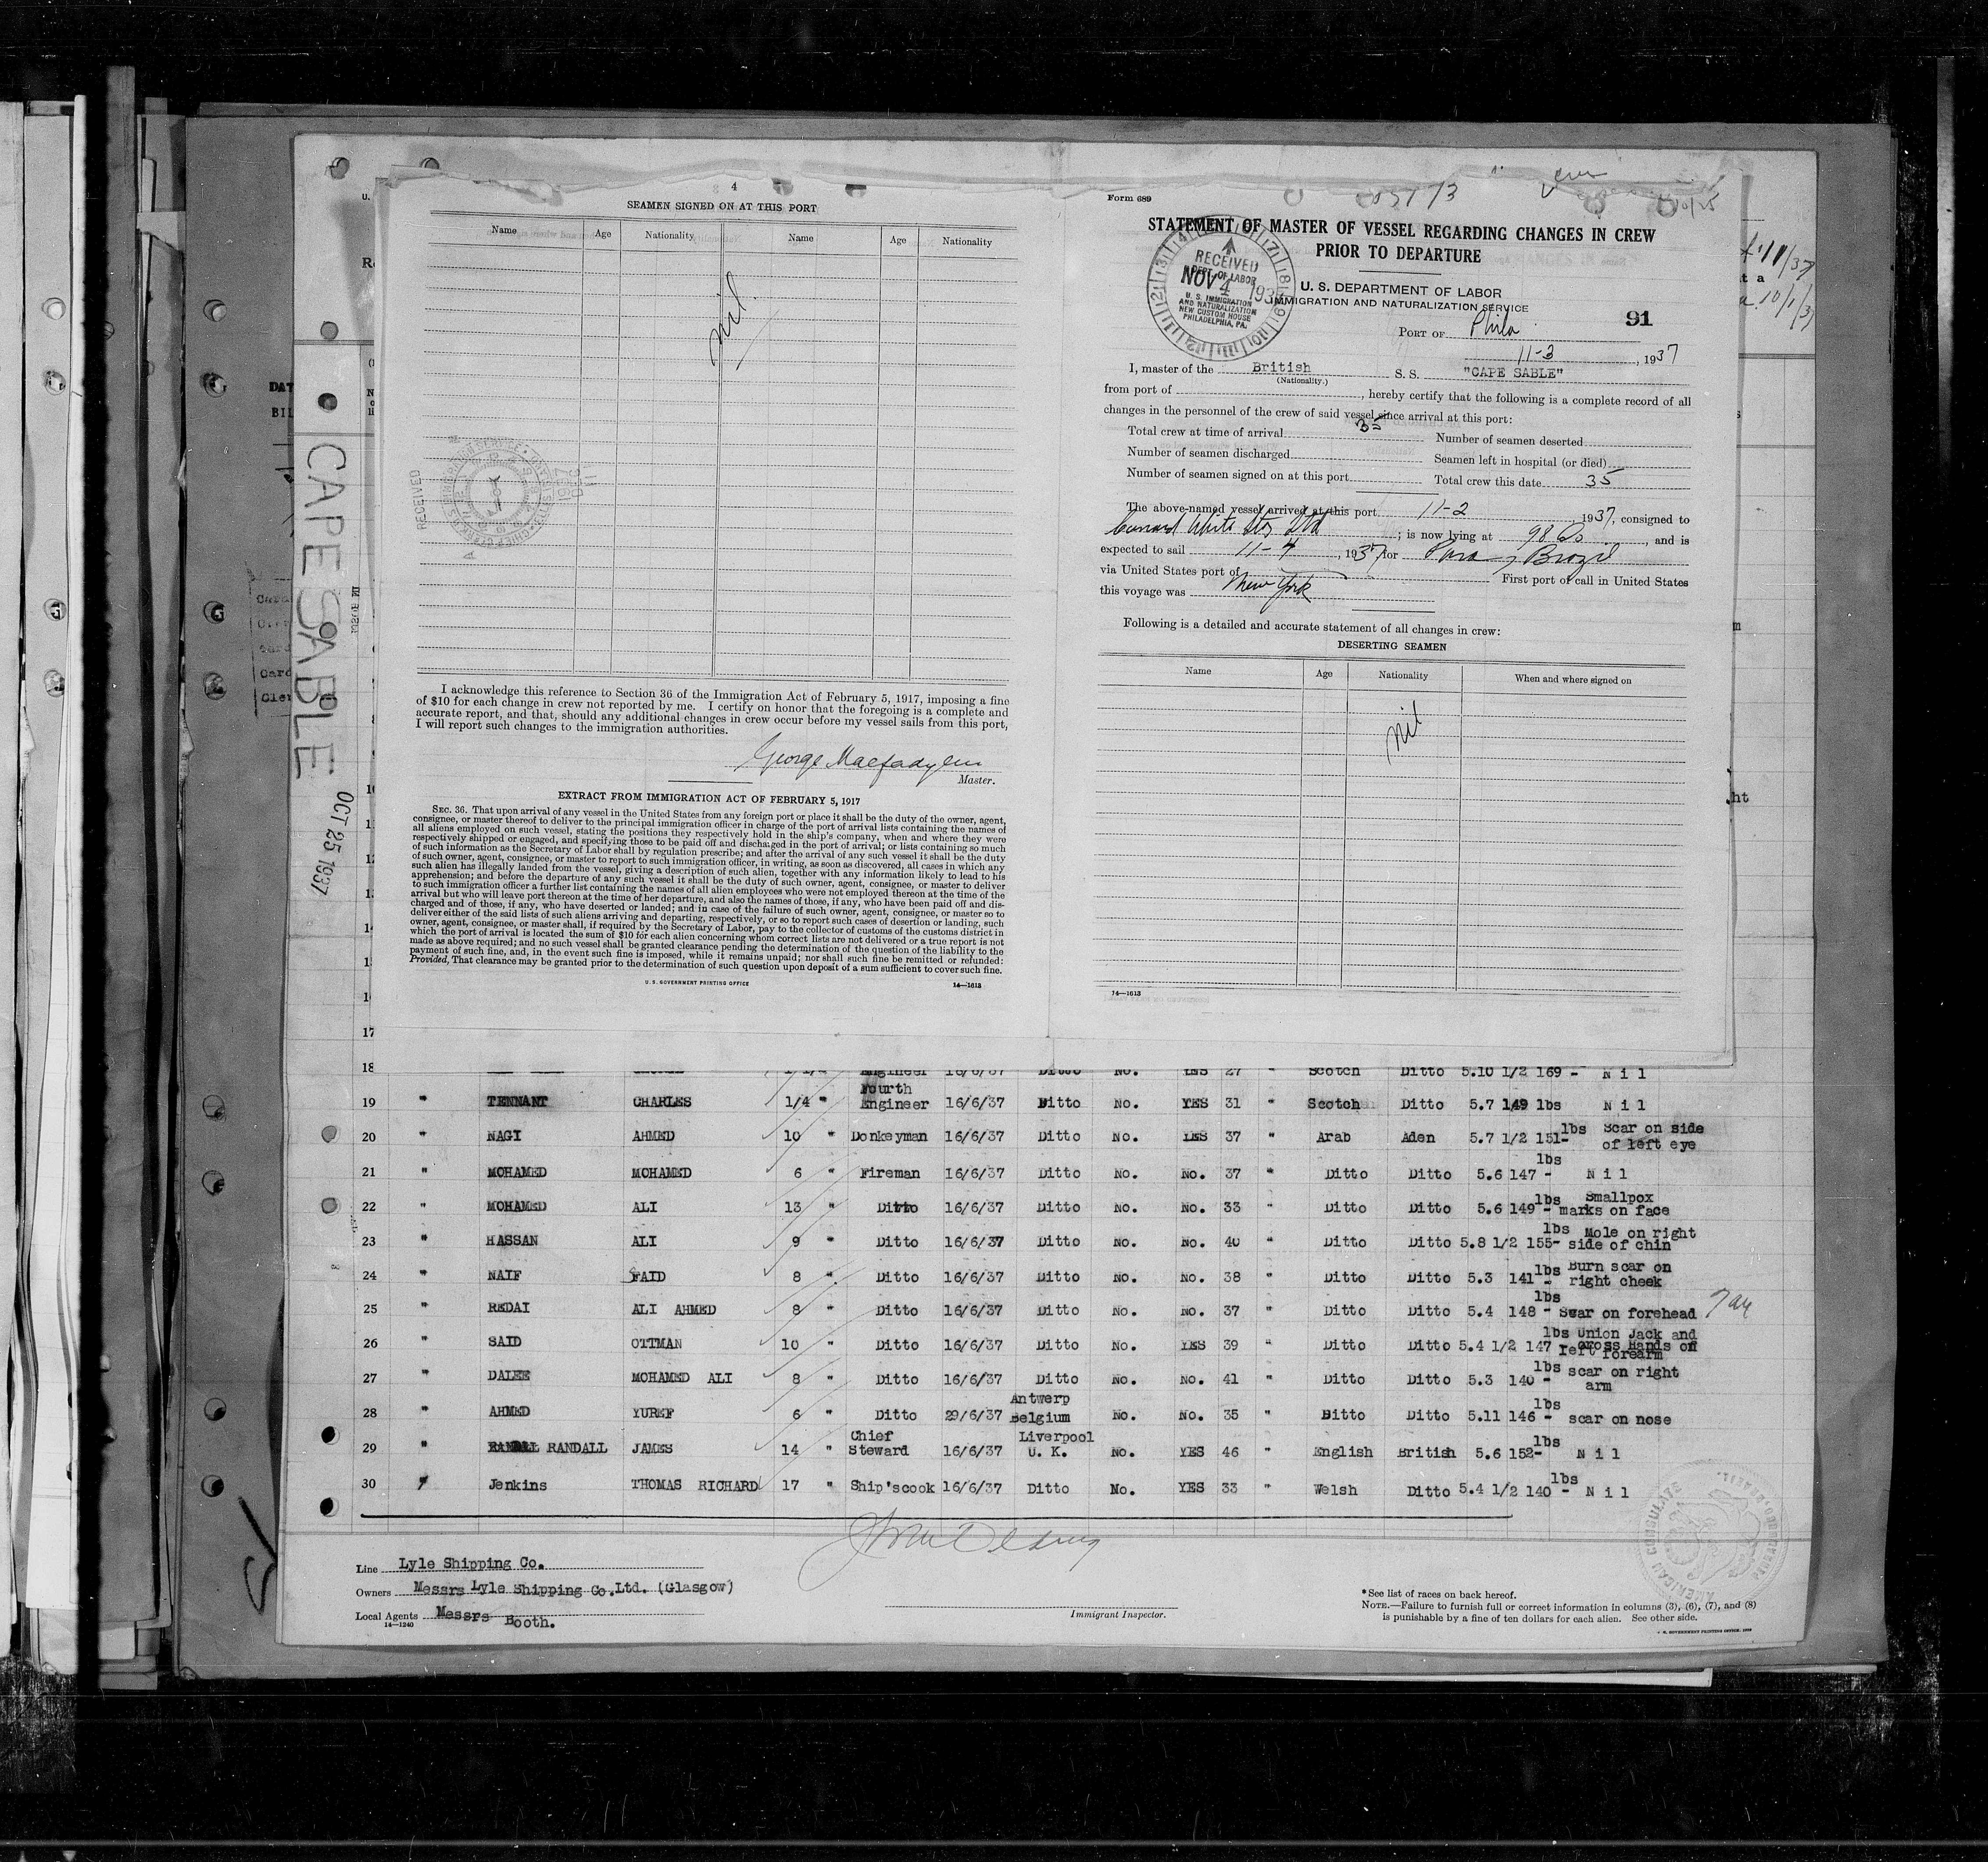 4
SEAMEN SIGNED ON AT THIS PORT
Name Age Nationality Name Age Nationality
nil.
RECEIVED
I acknowledge this reference to Section 36 of the Immigration Act of February 5, 1917, imposing a fine
of $10 for each change in crew not reported by me. I certify on honor that the foregoing is a complete and
accurate report, and that, should any additional changes in crew occur before my vessel sails from this port,
I will report such changes to the immigration authorities.
George Macfadyen
Master.
EXTRACT FROM IMMIGRATION ACT OF FEBRUARY 5, 1917
SEC. 36. That upon arrival of any vessel in the United States from any foreign port or place it shall be the duty of the owner, agent,
consignee, or master thereof to deliver to the principal immigration officer in charge of the port of arrival lists containing the names of
all aliens employed on such vessel, stating the positions they respectively hold in the ship's company, when and where they were
respectively shipped or engaged, and specifying those to be paid off and discharged in the port of arrival; or lists containing so much
of such information as the Secretary of Labor shall by regulation prescribe; and after the arrival of any such vessel it shall be the duty
of such owner, agent, consignee, or master to report to such immigration officer, in writing, as soon as discovered, all cases in which any
such alien has illegally landed from the vessel, giving a description of such alien, together with any information likely to lead to his
apprehension; and before the departure of any such vessel it shall be the duty of such owner, agent, consignee, or master to deliver
to such immigration officer a further list containing the names of all alien employees who were not employed thereon at the time of the
arrival but who will leave port thereon at the time of her departure, and also the names of those, if any, who have been paid off and dis-
charged and of those, if any, who have deserted or landed; and in case of the failure of such owner, agent, consignee, or master so to
deliver either of the said lists of such aliens arriving and departing, respectively, or so to report such cases of desertion or landing, such
owner, agent, consignee, or master shall, if required by the Secretary of Labor, pay to the collector of customs of the customs district in
which the port of arrival is located the sum of $10 for each alien concerning whom correct lists are not delivered or a true report is not
made as above required; and no such vessel shall be granted clearance pending the determination of the question of the liability to the
payment of such fine, and, in the event such fine is imposed, while it remains unpaid; nor shall such fine be remitted or refunded:
Provided, That clearance may be granted prior to the determination of such question upon deposit of a sum sufficient to cover such fine.
U. S. GOVERNMENT PRINTING OFFICE 14—1613
Form 689
STATEMENT OF MASTER OF VESSEL REGARDING CHANGES IN CREW
PRIOR TO DEPARTURE
U. S. DEPARTMENT OF LABOR
IMMIGRATION AND NATURALIZATION SERVICE
RECEIVED
DEPT. OF LABOR
NOV 4 1937
U. S. IMMIGRATION
AND NATURALIZATION
NEW CUSTOM HOUSE
PHILADELPHIA, PA.
91
PORT OF Phila.
11-3, 1937
I, master of the British S. S. "CAPE SABLE"
(Nationality.)
from port of , hereby certify that the following is a complete record of all
changes in the personnel of the crew of said vessel since arrival at this port:
Total crew at time of arrival 35 Number of seamen deserted
Number of seamen discharged Seamen left in hospital (or died)
Number of seamen signed on at this port Total crew this date 35
The above-named vessel arrived at this port 11-2 1937, consigned to
Cunard White Star Ltd ; is now lying at 98 So , and is
expected to sail 11-4, 1937 for Para, Brazil
via United States port of First port of call in United States
this voyage was New York
Following is a detailed and accurate statement of all changes in crew:
DESERTING SEAMEN
Name Age Nationality When and where signed on
nil
14—1613
CAPE SABLE
OCT 25 1937
17
18 Engineer 16/6/37 Ditto No. YES 27 " Scotch Ditto 5.10 1/2 169 - Nil
19 " TENNANT CHARLES 1/4 " Fourth Engineer 16/6/37 Ditto No. YES 31 " Scotch Ditto 5.7 149 lbs Nil
20 " NAGI AHMED 10 " Donkeyman 16/6/37 Ditto No. YES 37 " Arab Aden 5.7 1/2 151- lbs Scar on side of left eye
21 " MOHAMED MOHAMED 6 " Fireman 16/6/37 Ditto No. No. 37 " Ditto Ditto 5.6 147 - lbs Nil
22 " MOHAMED ALI 13 " Ditto 16/6/37 Ditto No. No. 33 " Ditto Ditto 5.6 149- lbs Smallpox marks on face
23 " HASSAN ALI 9 " Ditto 16/6/37 Ditto No. No. 40 " Ditto Ditto 5.8 1/2 155- lbs Mole on right side of chin
24 " NAIF SAID 8 " Ditto 16/6/37 Ditto No. No. 38 " Ditto Ditto 5.3 141 - lbs Burn scar on right cheek
25 " REDAI ALI AHMED 8 " Ditto 16/6/37 Ditto No. No. 37 " Ditto Ditto 5.4 148 - lbs Scar on forehead
26 " SAID OTTMAN 10 " Ditto 16/6/37 Ditto No. YES 39 " Ditto Ditto 5.4 1/2 147 - lbs Union Jack and cross Hands on left forearm
27 " DALEE MOHAMED ALI 8 " Ditto 16/6/37 Ditto No. No. 41 " Ditto Ditto 5.3 140 - lbs scar on right arm
28 " AHMED YUREF 6 " Ditto 29/6/37 Antwerp Belgium No. No. 35 " Ditto Ditto 5.11 146 - lbs scar on nose
29 " RANDALL JAMES 14 " Chief Steward 16/6/37 Liverpool U. K. No. YES 46 " English British 5.6 152- lbs Nil
30 " Jenkins THOMAS RICHARD 17 " Ship's cook 16/6/37 Ditto No. YES 33 " Welsh Ditto 5.4 1/2 140 - lbs Nil
Line Lyle Shipping Co.
Owners Messrs Lyle Shipping Co. Ltd. (Glasgow)
Local Agents Messrs Booth.
14—1240
Immigrant Inspector.
*See list of races on back hereof.
NOTE.—Failure to furnish full or correct information in columns (3), (6), (7), and (8)
is punishable by a fine of ten dollars for each alien. See other side.
AMERICAN CONSULATE